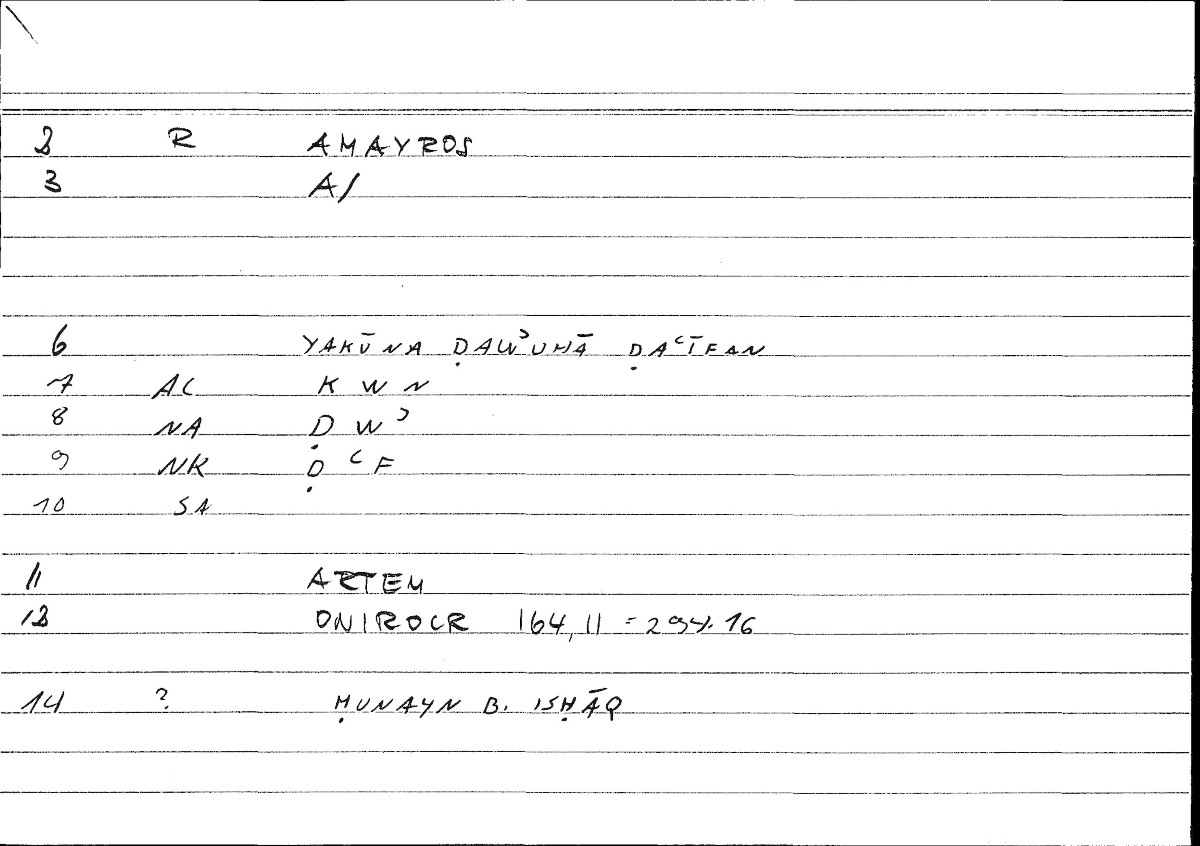 2 R AMAYROS
3 A/
6 YAKŪNA ḌAWʾUHĀ ḌAʿĪFAN
7 AC K W N
8 NA Ḍ W ʾ
9 NK Ḍ ʿ F
10 SA
11 ARTEM
12 ONIROCR 164,11 = 294.16
14 ? ḤUNAYN B. ISḤĀQ